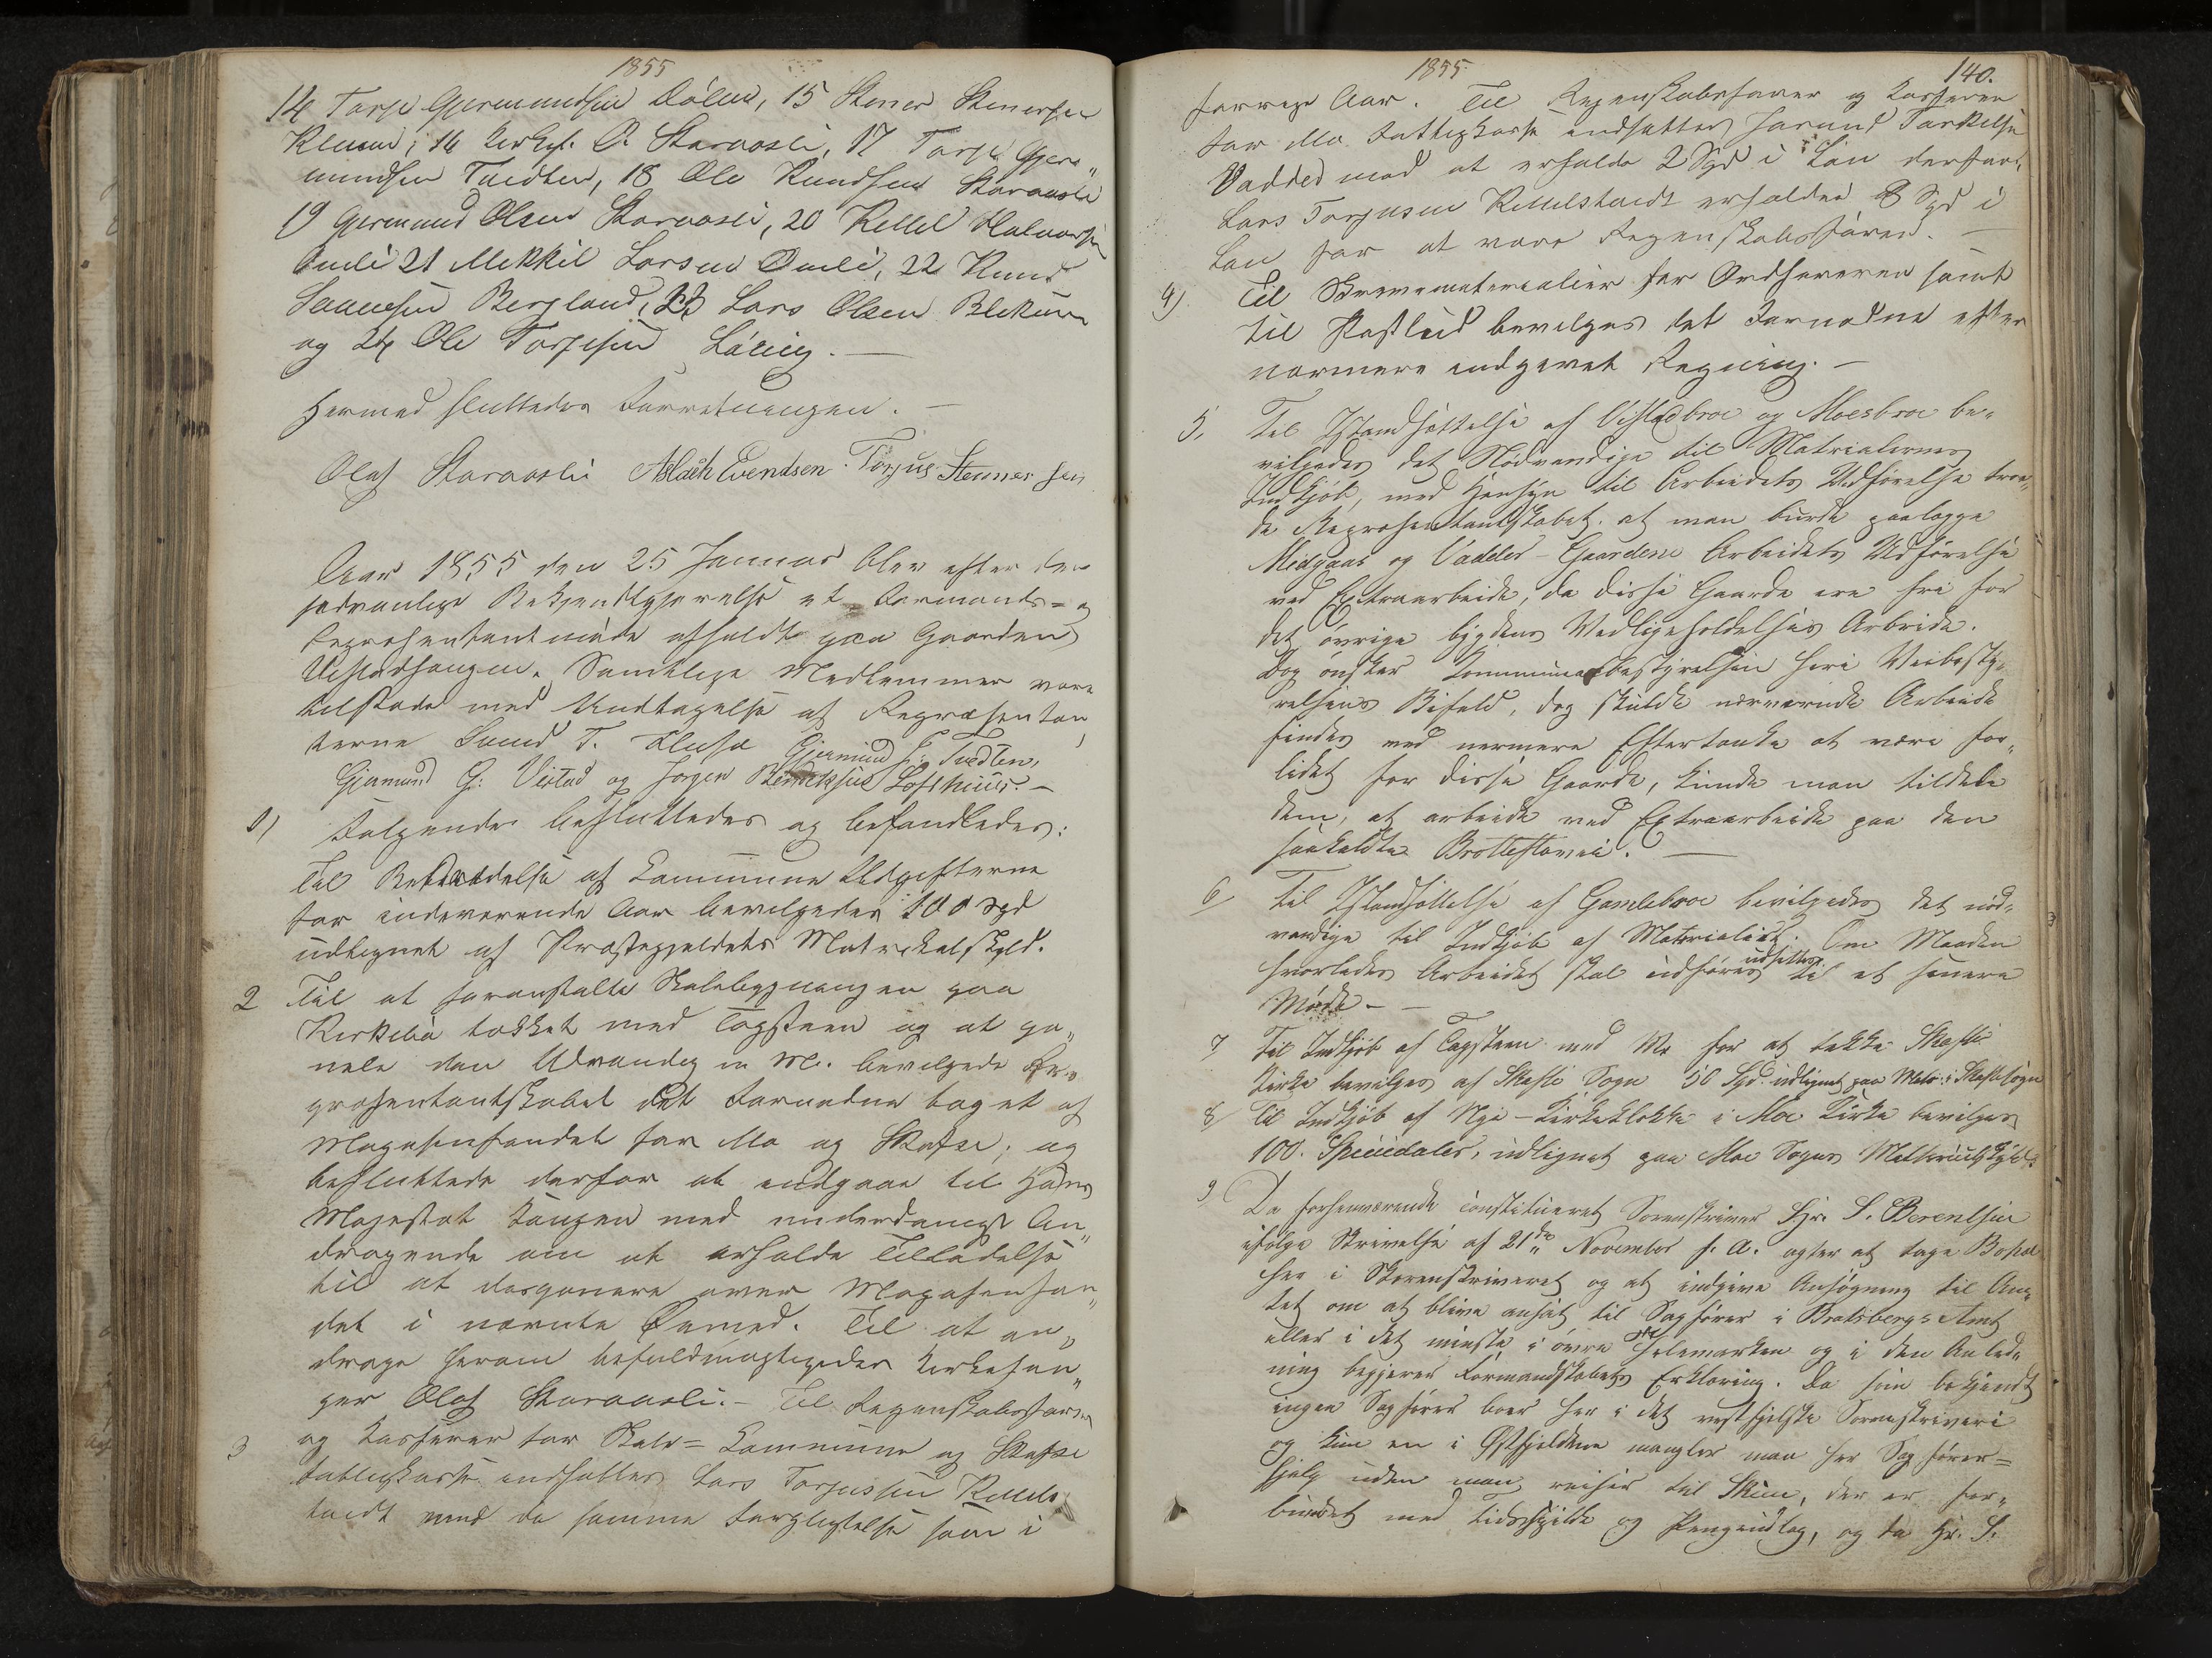 1855
14 Torje Gjermundsen Dólen, 15 Stener Stenersen
Klumd, 16 Kirkes. O. Staraasli, 17 Torje Gjer„
mundsen Tvedten, 18 Ole Knudsen Staraasli
19 Gjermund Olsen Staraasli, 20 Kettel Halvorsen
Omli 21 Mekkil Larsen Omli, 22 Knud
Saamsen Bergland, 23 Lars Olsen Blekum
og 24 Ole Torjesen Lóning. —
Hermed sluttedes Forretningen. —
Olaf Staraaslie Aslach Evendsen. Torjus Stenner sen
Aar 1855 den 25 Januar blev efter den
sedvanlige Bekjendtgjørelse et Formands= og
Repræsentantmøde afholdt paa Gaarden
Vistadhaugen. Samtlige Medlemmer vare
tilstede med Undtagelse af Repræsentan„
terne Svend T. Gjermund H: Tvedten,
Gjermund G: Vistad og Jørgen Bendiksen Lofthuus. —
1) Følgende besluttedes og befandtedes:
Til Bestridelse af Commune Udgifterne
for indeverende Aar bevilgedes 100 Spd
udlignet af Præstegjeldets Matrikelskyld.
2 Til at foranstalte Skolebygningen paa
Kirkebø tækket med Tagsteen og at pa„
nele den Udvendig m. M. bevilgede Re„
præsentantskabet det Fornødne taget af
Magasinfondet for Mo og Skafse, og
besluttede derfor at indgaae til Hans
Majestæt Kongen med underdanigst An„
dragende om at erholde Tilladelse
til at desponere over Magasinfon„
det i nævnte Øiemed. Til at an„
drage herom befuldmægtigedes Kirkesan„
ger Olaf Staraasli. — Til Regenskabsfører
3 og Kasserer for Skole= Commune og Skafse
Fattigkasse indsattes Lars Torjussen Kittels
tveidt med de samme Forpligtelse som i
1855
140.
forrige Aar. Til Regenskabsfører og Kasserer
for Mo Fattigkasse indsattes Tarkelsen
Vadder mod at erholde 2 Spd i Løn derfor.
Lars Torjusen Kittelstveidt erholder 8 Spd i
Løn for at være Regenskabsfører. —
4) Til Skrivematerialier for Ordføreren samt
til Postbud bevilges det Fornødne efter
nærmere indgivet Regning. —
5, Til Istandsættelse af Vistadbroe og Moesbroe be„
vilgedes det Nødvendige til Matrialernes
Indkjøb, med Hensyn til Arbeidets Udførelse troe„
de Repræsentantskabet, at man burde paalægge
Midgaas og Vadder-Gaardene Arbeidets Udførelse
ved Extraarbeide, da disse Gaarde ere fri for
det øvrige bygdens Vedligeholdelses Arbeide.
Dog ønsker Communebestyrelsen heri Veibesty„
relsens Bifald, dog skulde nærværende Arbeide
findes ved nærmere Eftertanke at være for„
lidet for disse Gaarde, kunde man tildele
dem, at arbeide ved Extraarbeide paa den
saakaldte Brottestøvei. —
6, Til Istandsættelse af Gamlebroe bevilgedes det nød„
vendige til Indkjøb af Materialier. Om Maaden
hvorledes Arbeidet skal udføres udsettes til et senere
Møde. —
7, Til Indkjøb af Tagsteen med M. for at tække Skafse
Kirke bevilges af Skafse Sogn 50 Spd. udlignet paa Matr: i Skafse Sogn
8, Til Indkjøb af Nye-Kirkeklokke i Moe Kirke bevilges
100. Speciedaler, udlignet paa Moe Sogns Matricul Skyld.
9 Da forhenværende constitueret Sorenskriver Hr. S. Berentsen
ifølge Skrivelse af 21de November f. A. agter at tage Bopæl
her i Sorenskriveriet og at indgive Ansøgning til Am„
tet om at blive ansat til Sagfører i Bratsbergs Amt
eller i det mindste i øvre Thelemarken og i den Anled„
ning begjærer Formandskabets Erklæring. Da som bekjendt
ingen Sagfører boer her i det vestfjelske Sorenskriveri
og kun en i Østfjeldene mangler man her Sagfører=
hjelp uden man reiser til Skien, der er for„
bundet med Tidsspilde og Pengeudlæg, og da Hr. S.